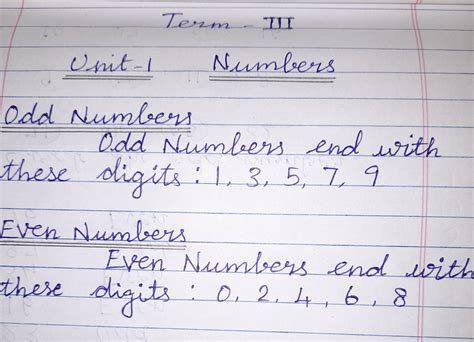 Term - III
Unit-1 Numbers
Odd Numbers
Odd Numbers end with
these digits : 1, 3, 5, 7, 9
Even Numbers
Even Numbers end with
these digits : 0, 2, 4, 6, 8